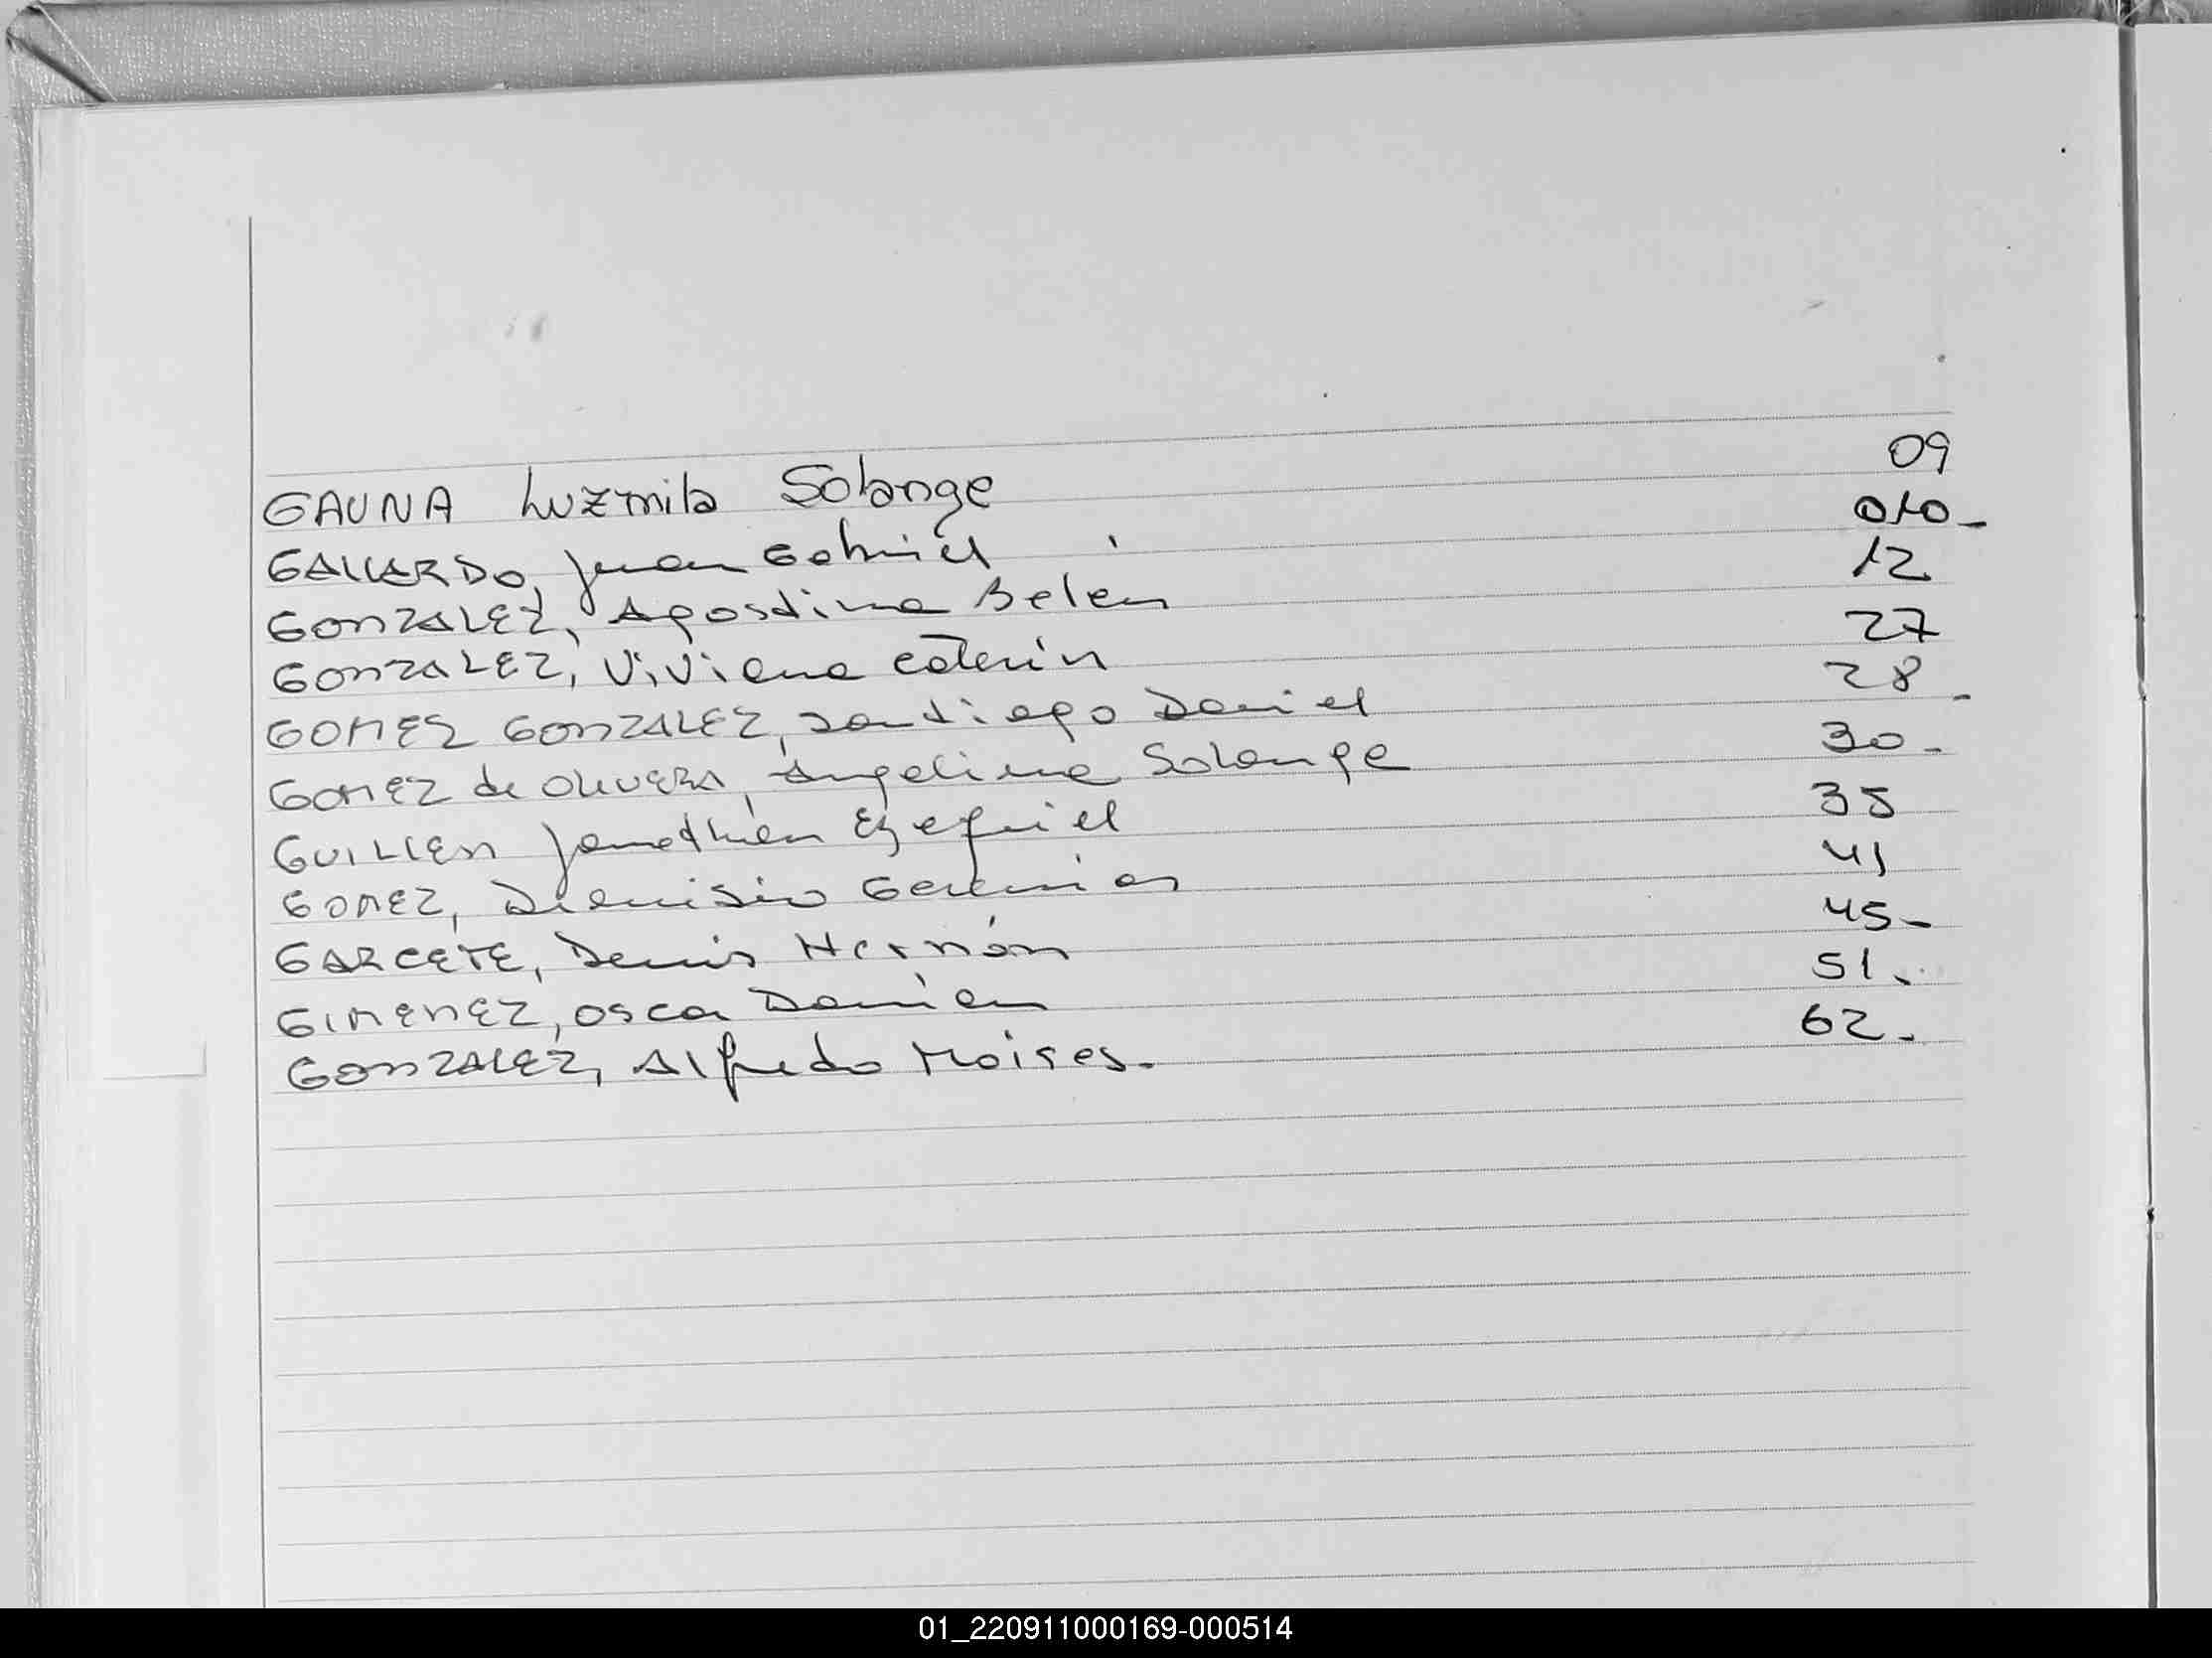 GAUNA Luzmila Solange 09
GALLARDO, Juan Gabriel 010-
GONZALEZ, Agostina Belén 12
GONZALEZ, Viviana Caterin 27
GOMES GONZALEZ, Santiago Daniel 28-
GOMEZ de OLIVERA, Angelina Solange 30-
GUILLEN Jonathán Ezequiel 35
GOMEZ, Dionisio Geremías 41
GARCETE, Denis Hernán 45-
GIMENEZ, Oscar Damián 51.
GONZALEZ, Alfredo Moises. 62-
01_220911000169-000514